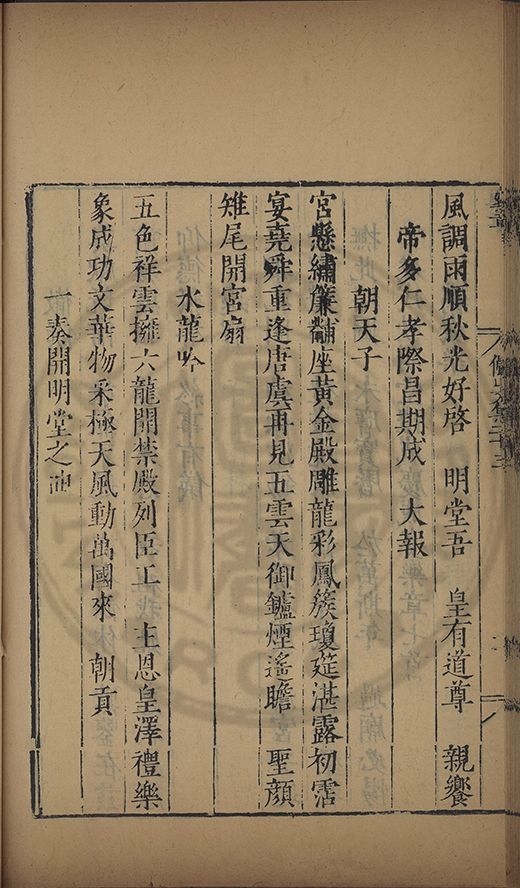 風調雨順秋光好啓　明堂吾　皇有道尊　親饗
帝多仁孝際昌期成　大報
朝天子
宮懸繡簾黼座黃金殿雕龍彩鳳簇瓊筵湛露初霑
宴堯舜重逢唐虞再見五雲天御鑪煙遙瞻　聖顏
雉尾開宮扇
水龍吟
五色祥雲擁六龍開禁殿列臣工　主恩皇澤禮樂
象成功文華物采極天風動萬國來　朝貢
一奏開明堂之曲